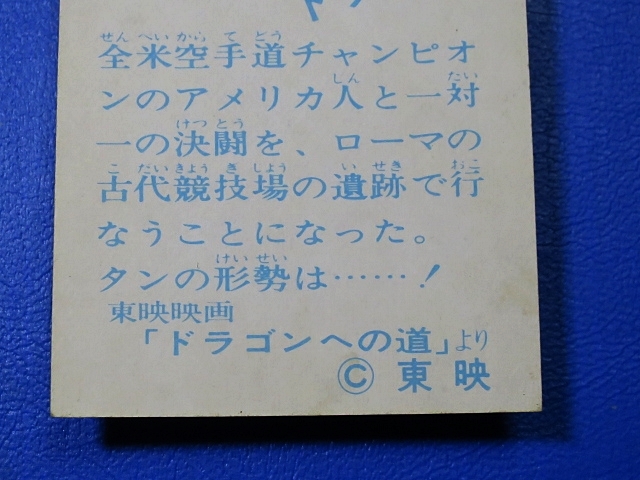 全米空手道チャンピオ
ンのアメリカ人と一対
一の決闘を、ローマの
古代競技場の遺跡で行
なうことになった。
タンの形勢は……！
東映映画
「ドラゴンへの道」より
© 東映